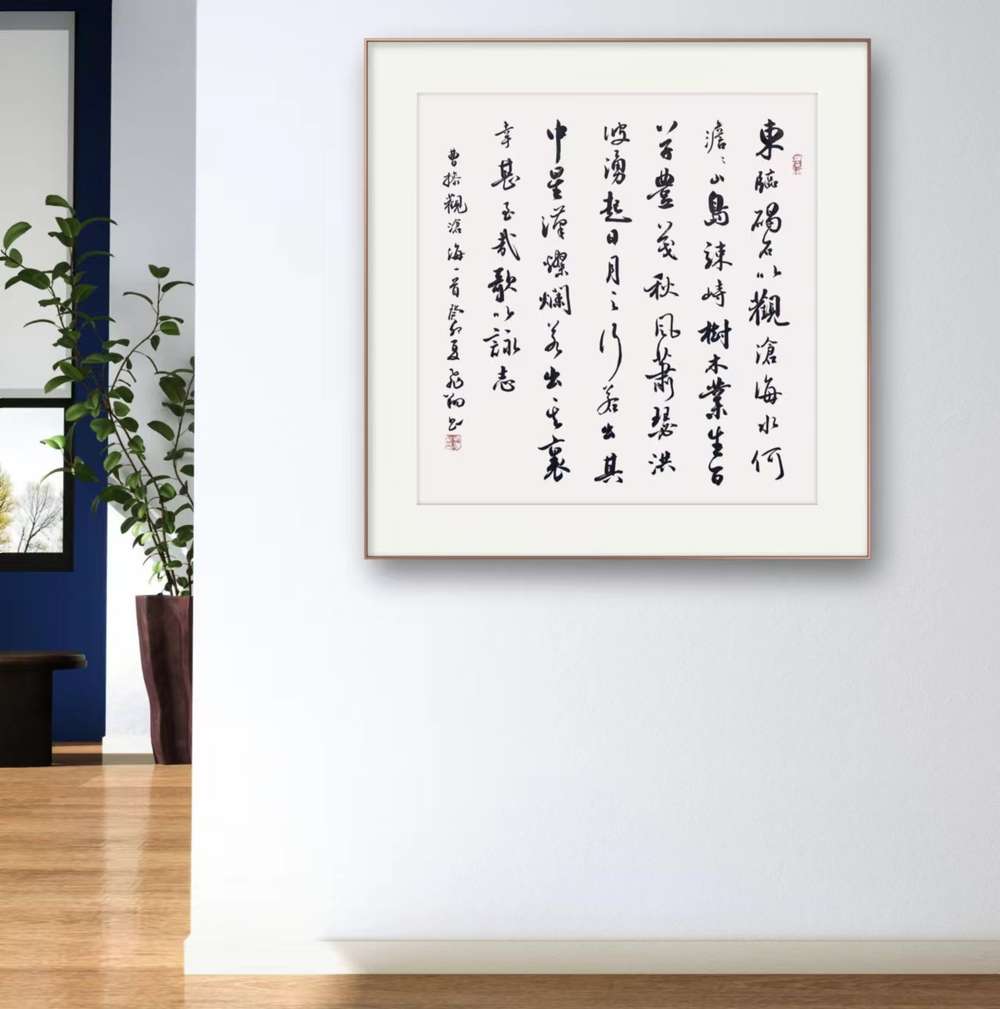 東臨碣石以觀滄海水何
澹〻山島竦峙樹木叢生百
草豐茂秋風蕭瑟洪
波湧起日月之行若出其
中星漢燦爛若出其裏
幸甚至哉歌以詠志
曹操觀滄海一首癸卯夏